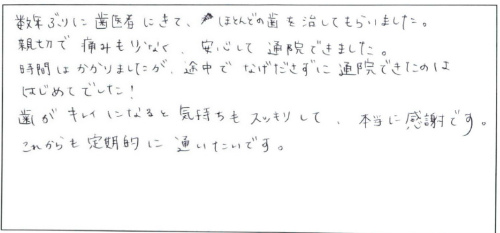 数年ぶりに歯医者にきて、ほとんどの歯を治してもらいました。
親切で痛みも少なく、安心して通院できました。
時間はかかりましたが、途中でなげださずに通院できたのは
はじめてでした！
歯がキレイになると気持ちもスッキリして、本当に感謝です。
これからも定期的に通いたいです。